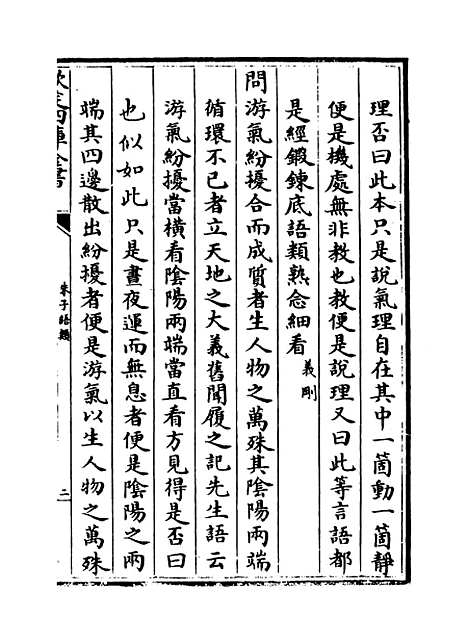 理否曰此本只是説氣理自在其中一箇動一箇靜
便是機處無非教也教便是説理又曰此等言語都
是經鍛鍊底語𩔖熟念細看義剛
問游氣紛擾合而成質者生人物之萬殊其陰陽兩端
循環不已者立天地之大義舊聞履之記先生語云
游氣紛擾當横看陰陽兩端當直看方見得是否曰
也似如此只是晝夜運而無息者便是陰陽之兩
端其四邊散出紛擾者便是游氣以生人物之萬殊
欽定四庫全書
朱子語類
三